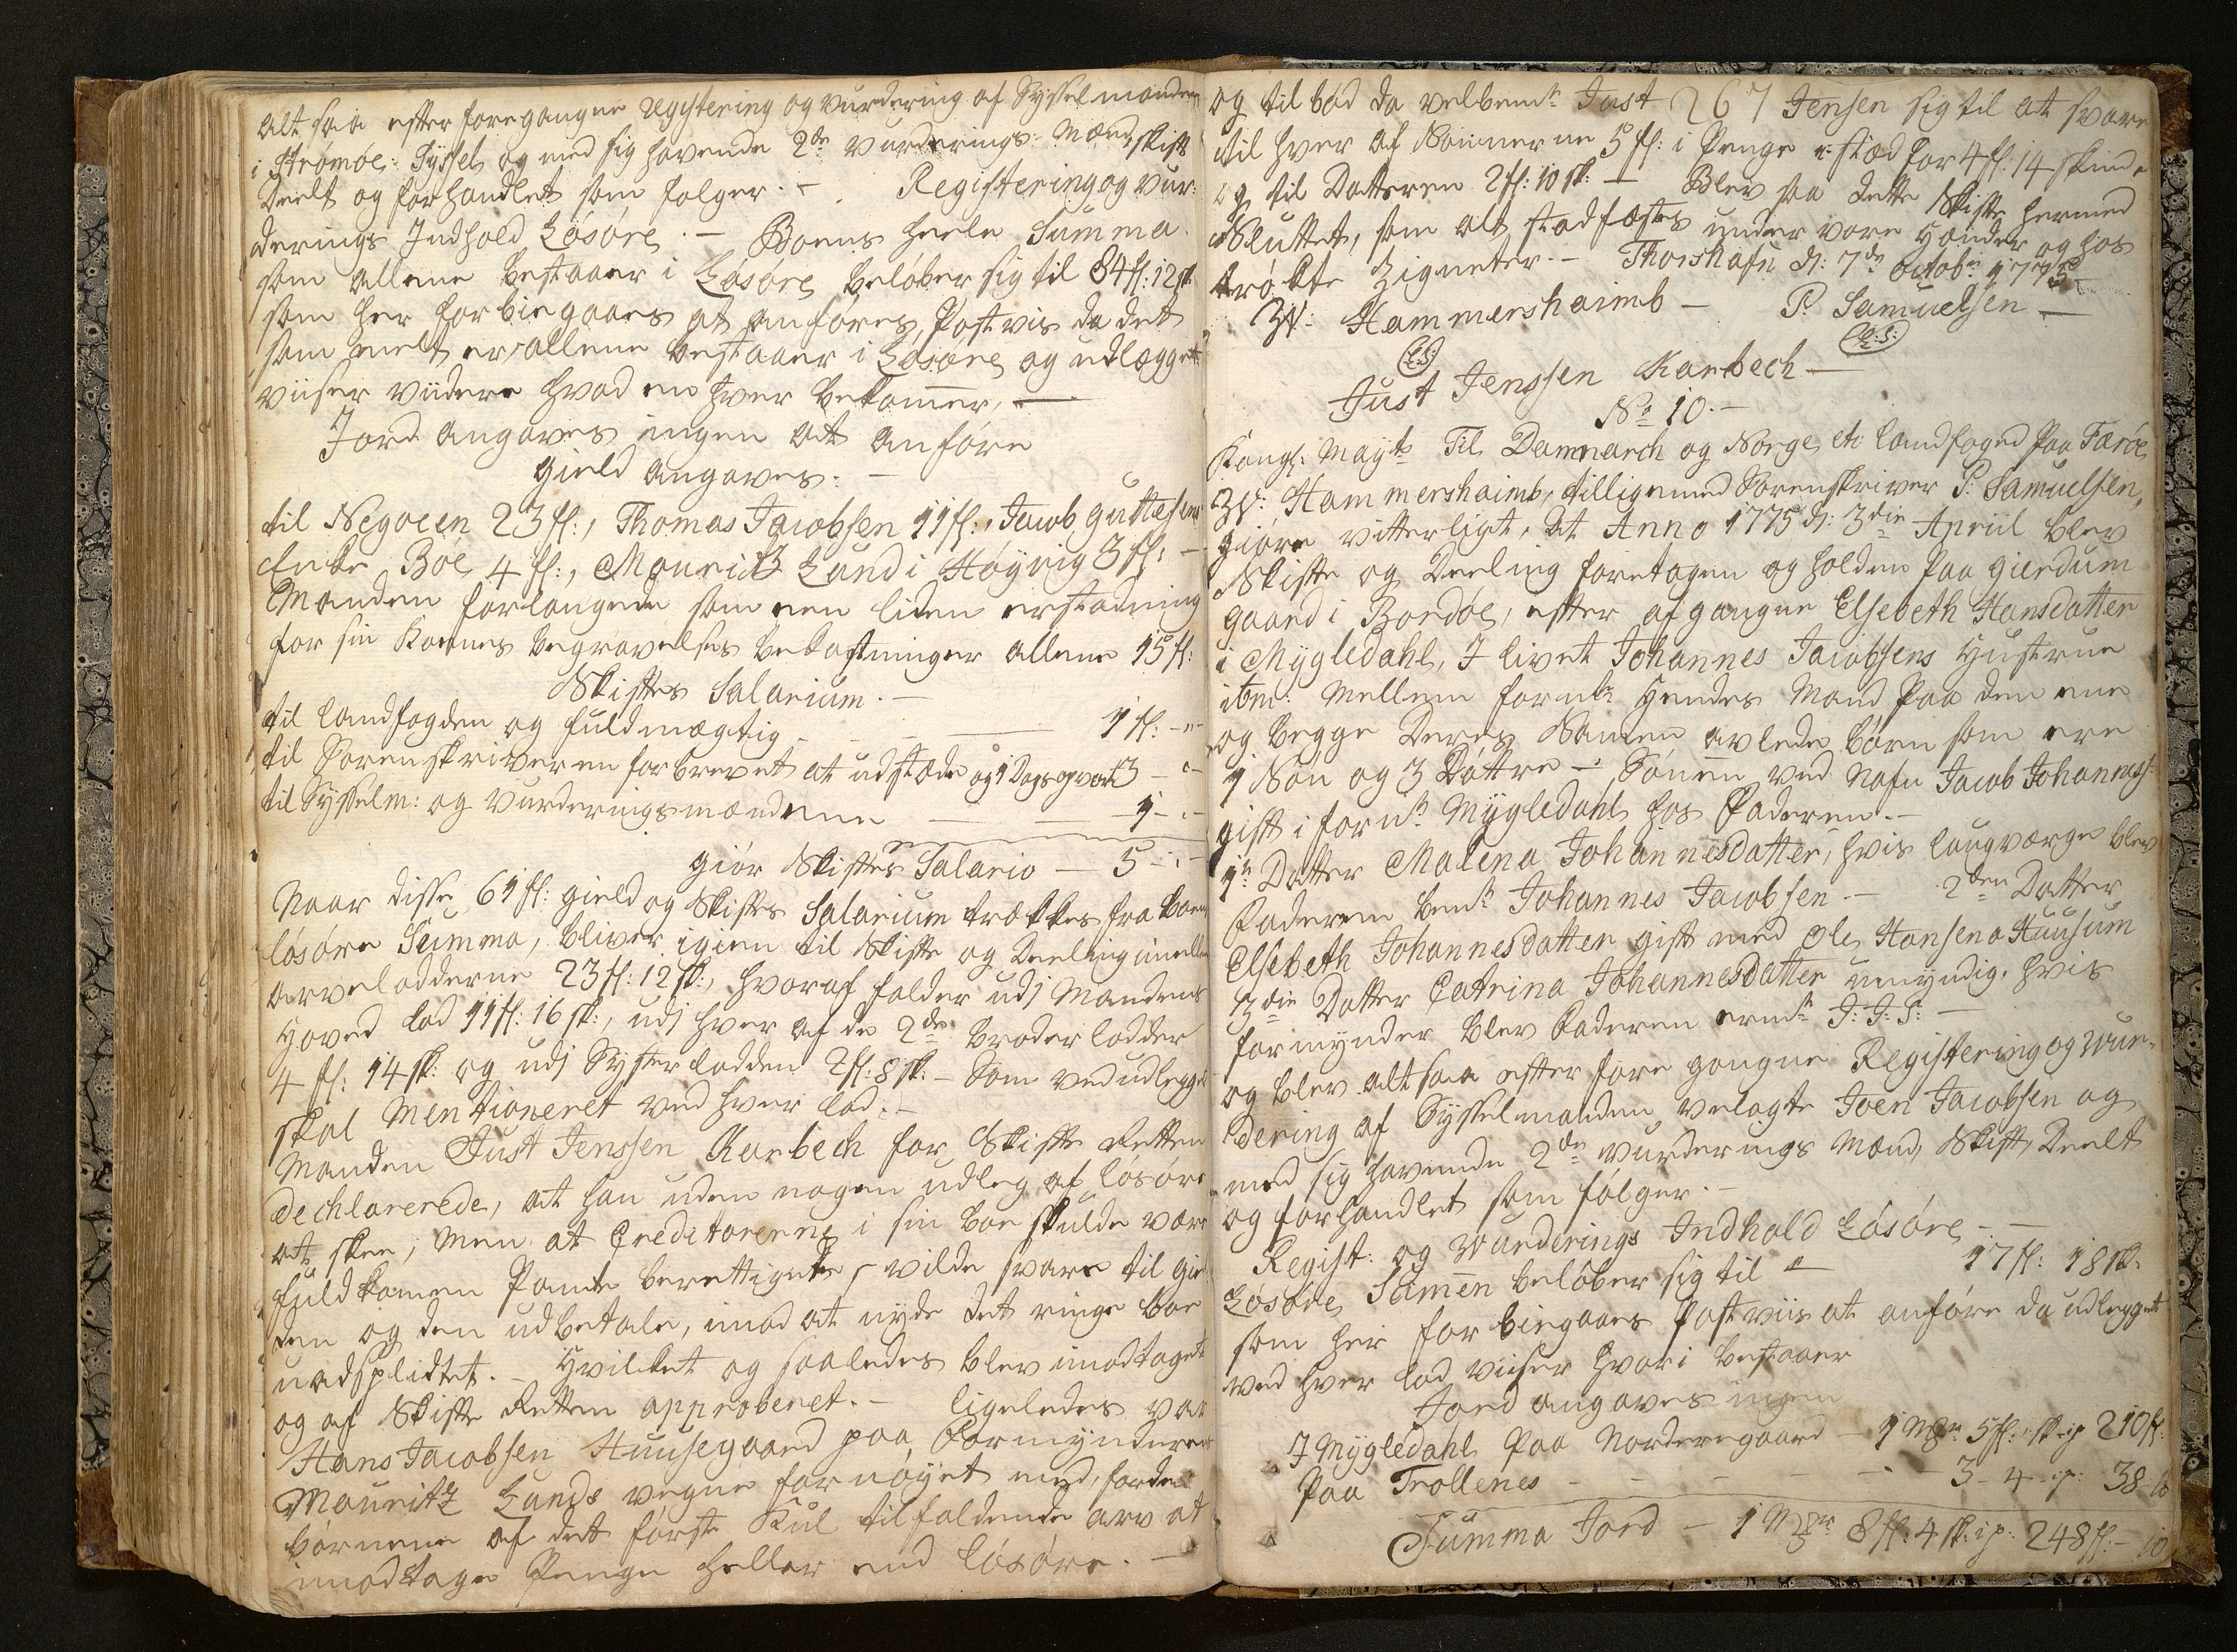 alt saa efter foregangne Registering og vurdering af Sysselmanden
i Strømøe: Syssel og med sig havende 2de vurderings Mænd, skift
Deelt og forhandlet som følger. - Registering og vur:
derings Indhold Løsøre. - Boens heele Summa.
som allene bestaaer i Løsøre beløber sig til 84 fl: 12 sk:
som her forbiegaaes at anføres, Postvis da det
som melt er allene bestaaer i Løsøre og udlægget
viiser viidere hvad en hver bekommer, -
Jord angaves ingen at anføre
gield angaves. -
til Negocen 23 fl:, Thomas Jacobsen 11 fl:, Jacob Guttesens
Enke Böe 4 fl:, Mouritz Lund i Høyvig 3 fl: -
Manden forlangede som een liden erstadning
for sin Kones begravelses bekostninger allene 15 fl:
Skiftes Salarium. -
til Landfogden og fuldmægtig - - - 1 fl: - " -
til Sorenskriveren for brevet at udstæde og 1 Dags opvart 3 - " -
til Sysselm: og vurderingsmændene - - 1 - " -
giör Skiftes Salario - 5 - " -
Naar disse 61 fl: gield og Skiftes Salarium trækkes fra Boens
løsøre Summa, bliver igien til Skifte og Deeling imellem
arvelodderne 23 fl: 12 sk:, hvoraf falder udj Mandens
Hoved lod 11 fl: 16 sk:, udj hver af de 2de broder lodder
4 fl: 14 sk: og udj Systerlodden 2 fl: 8 sk: - Som ved udlegget
skal Mentioneret ved hver lod. -
Manden Just Jenssen Karbech for Skifte Retten
dechlarerede, at han uden nogen udleg af løsøre
at skee, Men at Creditorerne i sin boe skulde være
fuldkomen Pante berettigede, vilde svare til giel
den og den udbetale, imod at nyde det ringe boe
uadsplidtet. - Hvilket og saaledes blev imodtaget
og af Skifte Retten approberet. - ligeledes var
Hans Jacobsen Huusegaard paa Formynderens
Mouritz Lunds vegne fornøyet med, for de
børnene af det første Kul tilfaldende arv at
imodtage Penge heller end løsøre. -
og tilbød da velbemte Just 267 Jensen sig til at svare
til hver af Sønnerne 5 fl: i Penge i stæd for 4 fl: 14 skind
og til Datteren 2 fl: 10 sk: - Blev saa dette Skifte hermed
Sluttet, som alt stadfæstes under vore Hænder og hos
trøkte Zigneter. - Thorshafn d: 7de octobr 1775
W: Hammershaimb - P: Samuelsen -
(L:S:) (L:S:)
Just Jenssen Karbech -
No 10. -
Kongl: Mayts Til Dannmarch og Norge etc: landfoged paa Færøe
W: Hammershaimb, tilligemed Sorenskriver P: Samuelsen,
giøre vitterligt, at Anno 1775 d: 3die Apriil blev
Skifte og Deeling foretagen og holden paa gierdum
gaard i Bordöe, efter afgangne Elsebeth Hansdatter
i Mygledahl, I livet Johannes Jacobsens Hustrue
ibm: Mellem fornte Hendes Mand paa den eene
og begge Deres Samen avlede børn som ere
1 Søn og 3 Døttre - Sønnen ved Nafn Jacob Johanness:
gift i fornte Mygledahl hos Faderen. -
1te Datter Malena Johannesdatter, hvis laugværge blev
Faderen bemte Johannes Jacobsen. - 2den Datter
Elsebeth Johannesdatter gift med Ole Hansen a Huusum
3die Datter Catrina Johannesdatter umyndig, hvis
formynder blev Faderen ermte J: J: S: -
og blev altsaa efter foregangne Registering og wur-
dering af Sysselmanden velagte Joen Jacobsen og
med sig havende 2de vurderings Mænd, Skift, Deelt
og forhandlet som følger. -
Regist: og Wurderings Indhold Løsøre - -
Løsøre Sumen beløber sig til " - 17 fl: 18 sk:
som her forbiegaaes Postviis at anføre da udlegget
ved hver lod viiser hvori bestaaer
Jord angaves ingen
I Mygledahl Paa Norderegaard - 1 Mrk 5 fl: " sk: ip 210 fl:
Paa Trollenes - - - - - 3 - 4 - ip: 38 - 10
Summa Jord - 1 Mrk 8 fl: 4 sk: ip: 248 fl: - 10